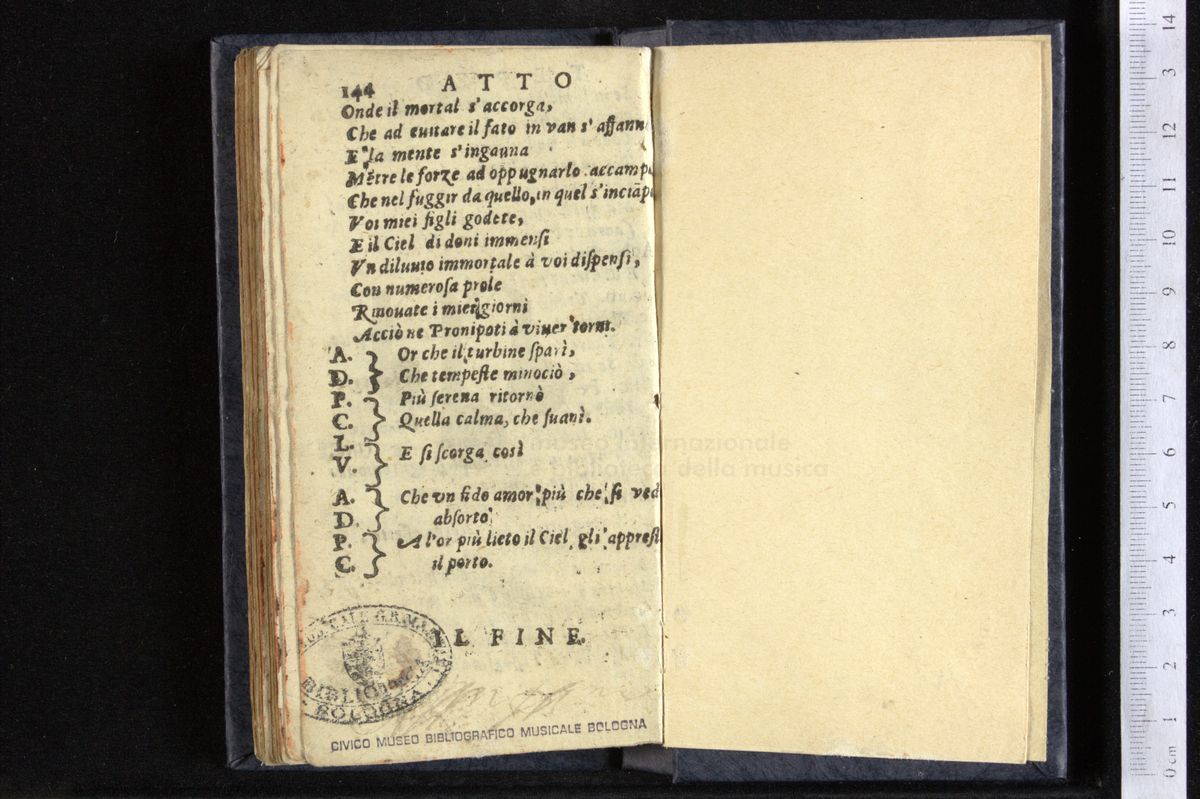 144 ATTO
Onde il mortal s'accorga,
Che ad euitare il fato in van s'affann
E' la mente s'inganna
Mẽtre le forze ad oppugnarlo accamp
Che nel fuggir da quello, in quel s'inciãp
Voi miei figli godete,
E il Ciel di doni immensi
Vn diluuio immortale à voi dispensi,
Con numerosa prole
Rinouate i miei giorni
Acciò ne Pronipoti à viuer torni.
A. Or che il turbine sparì,
D. Che tempeste minociò,
P. Più serena ritornò
C. Quella calma, che suanì.
L. E si scorga così
V.
A. Che vn fido amor più che si ved
D. absorto
P. Al'or più lieto il Ciel gli apprest
C. il porto.
IL FINE.
BIBLIOTECA
BOLOGNA
CIVICO MUSEO BIBLIOGRAFICO MUSICALE BOLOGNA
museo internazionale
e biblioteca della musica
0 cm 1 2 3 4 5 6 7 8 9 10 11 12 3 14